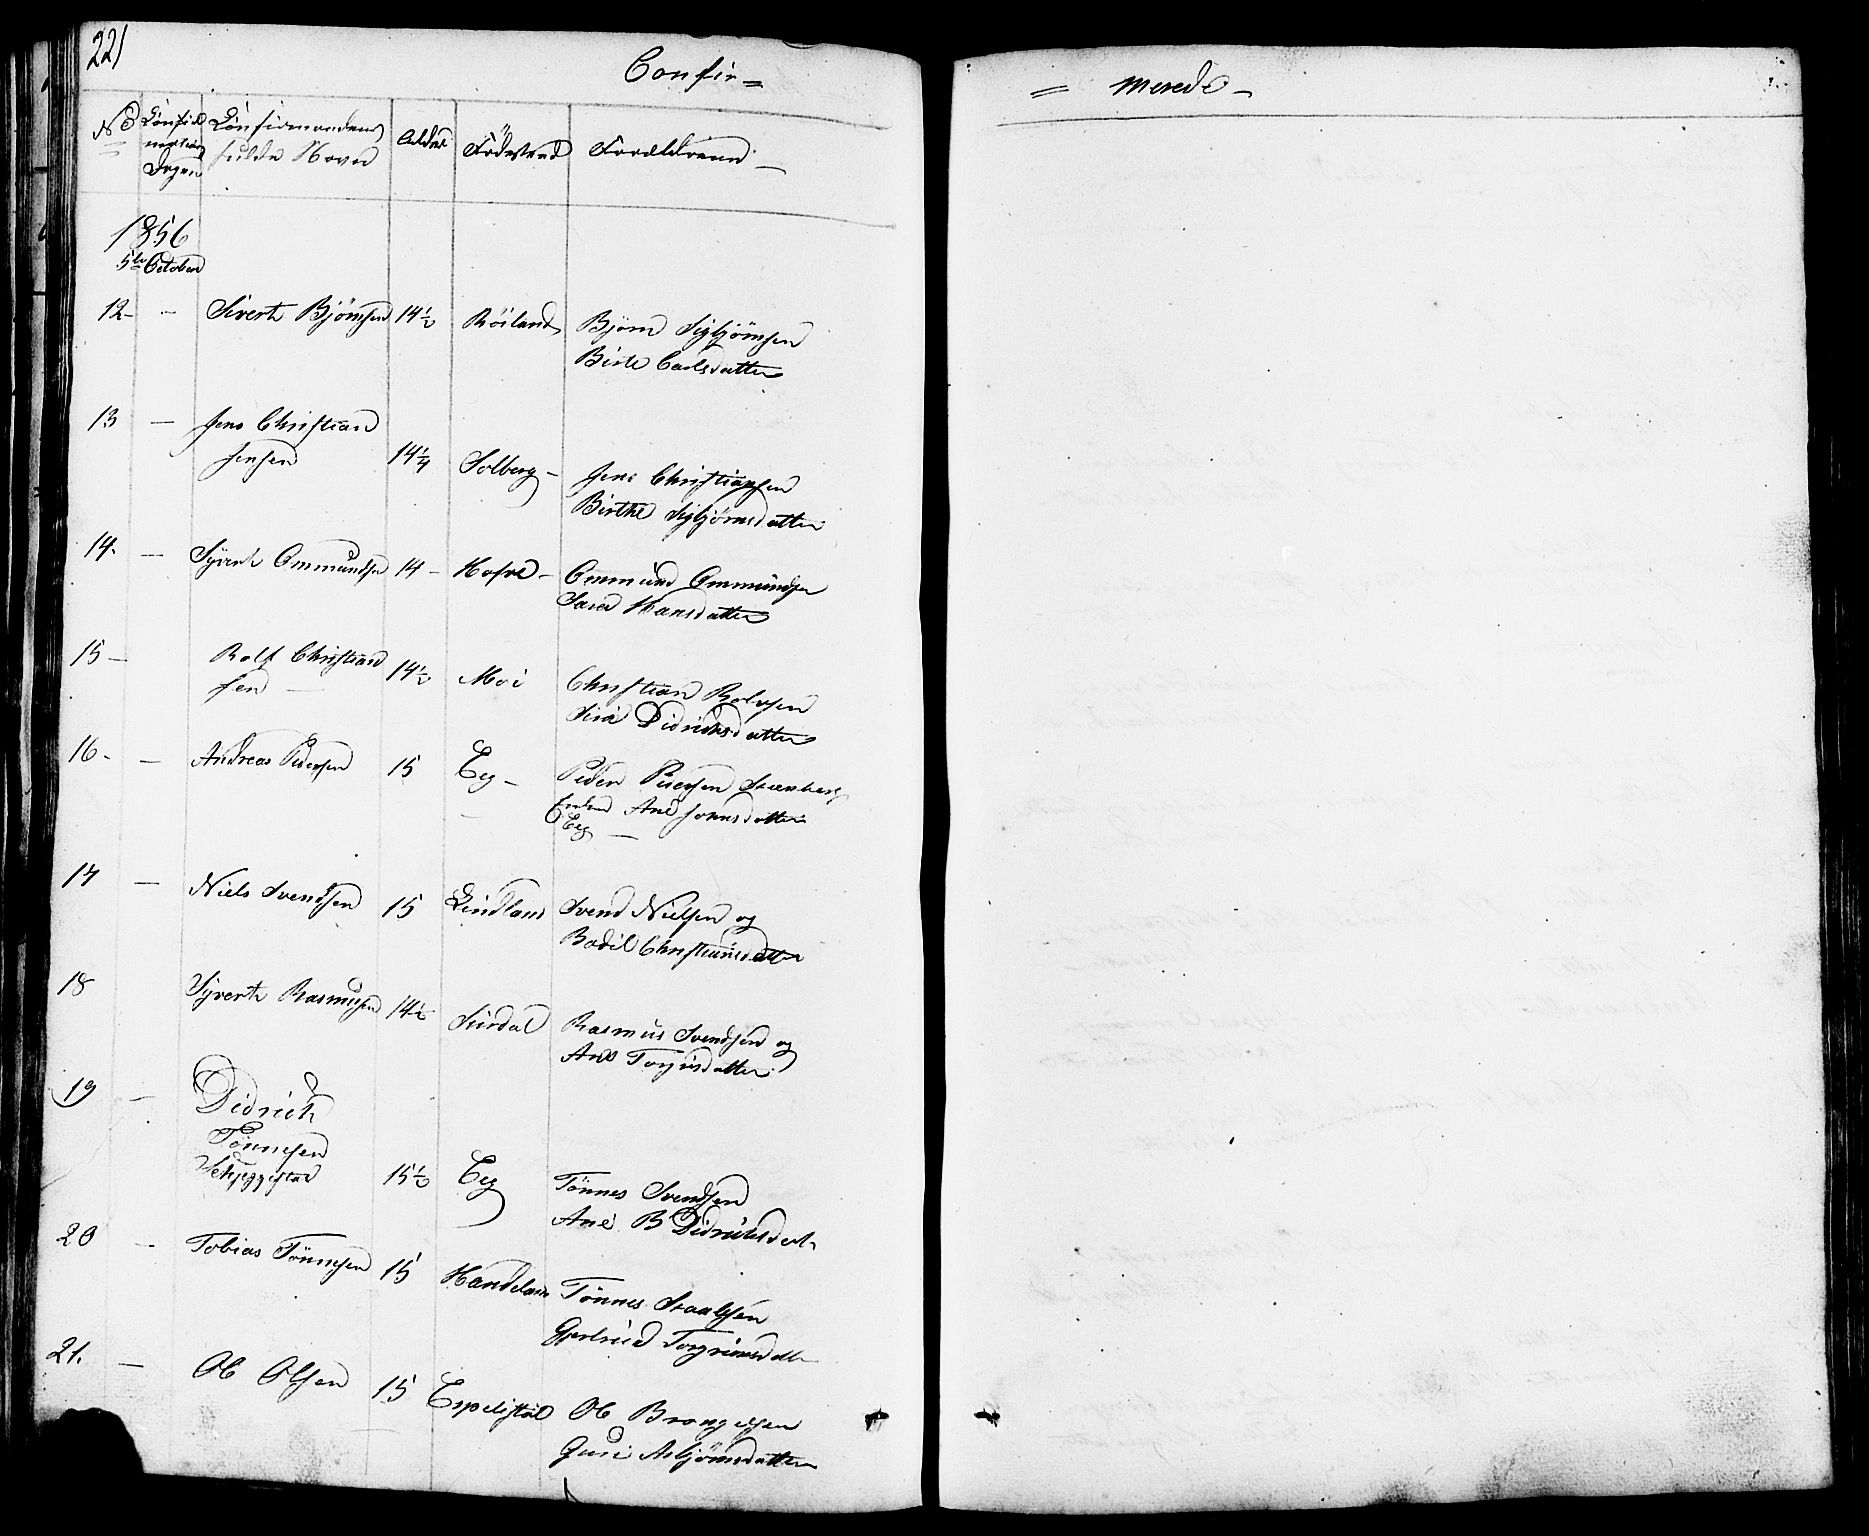 221
Confir=
= merede
No Confir Confirmandens Alder Födested Forældrene
mations fulde Navn
Dagen
1856
5te October
12 - Sivert Bjömsen 14½ Röiland Björn Sigbjörnsen
Birte Carlsdatter
13 - Jens Christian
Jensen 14¼ Solberg - Jens Christiansen
Birthe Sigbjörnsdatter
14. - Syvert Ommundsen 14 - Hofve - Ommund Ommundsen
Sara Hansdatter
15 - Rolf Christian
sen - 14½ Moi Christian Rolvsen
Siri Didriksdatter
16 - - Andreas Pedersen 15 Eeg - Peder Pedersen Steenberg
Enken Ane Jonnsdatter
Eeg -
17 - Niels Svendsen 15 Lindland Svend Nielsen og
Bodil Christiansdatter
18 Syvert Rasmussen 14½ Surdal Rasmus Svendsen og
Ane Torjusdatter
19 - Didrich
Tönnesen
Schjeggestad 15½ Eeg Tönnes Svendsen
Ane B Didriksdatt
20 - Tobias Tönnesen 15 Handeland Tönnes Staalesen
Gjertrud Torgrimsdatt
21. - Ole Olsen 15 Espelistöl Ole Brongelsen
Guri Asbjörnsdatter